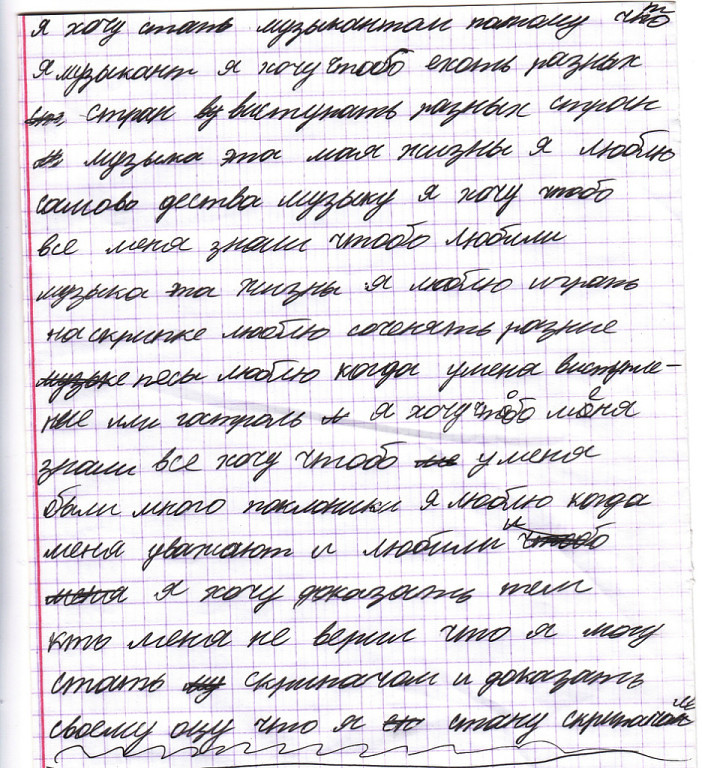 я хочу стать музыкантом потому что
я музыкант я хочу чтобо ехать разных
стран выступать разных стран
музыка эта мая жизны я люблю
самово дества музыку я хочу чтобо
все меня знали чтобо любили
музыка эта жизны я люблю играть
на скрипке люблю соченять разние
песы люблю когда умена виступле-
ние или гастроль я хочу чтобо меня
знали все хочу чтобо уменя
были много поклоники я люблю когда
меня уважают и любили и
я хочу доказать тем
кто меня не верил что я могу
стать скрипачом и доказать
своему оцу что я стану скрипачом